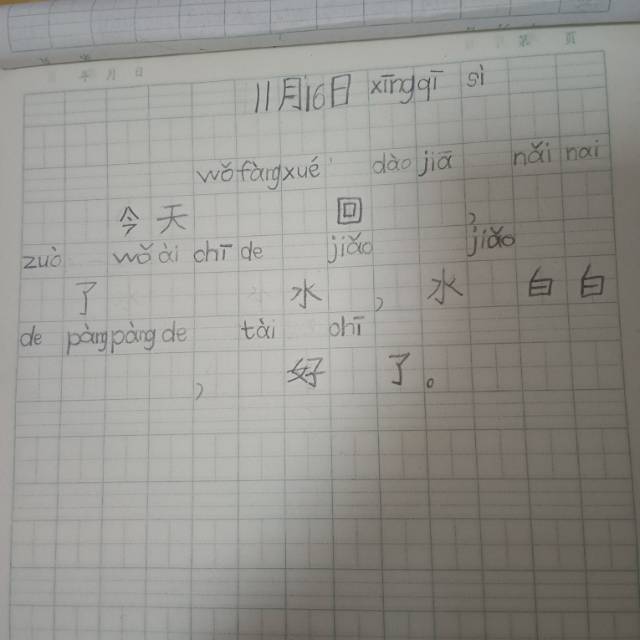 年 月 日
11月16日 xīngqī sì
今天 wǒ fàng xué 回 dào jiā , nǎi nai
zuò 了 wǒ ài chī de 水 jiǎo , 水 jiǎo 白白
de pàng pàng de , tài 好 chī 了。